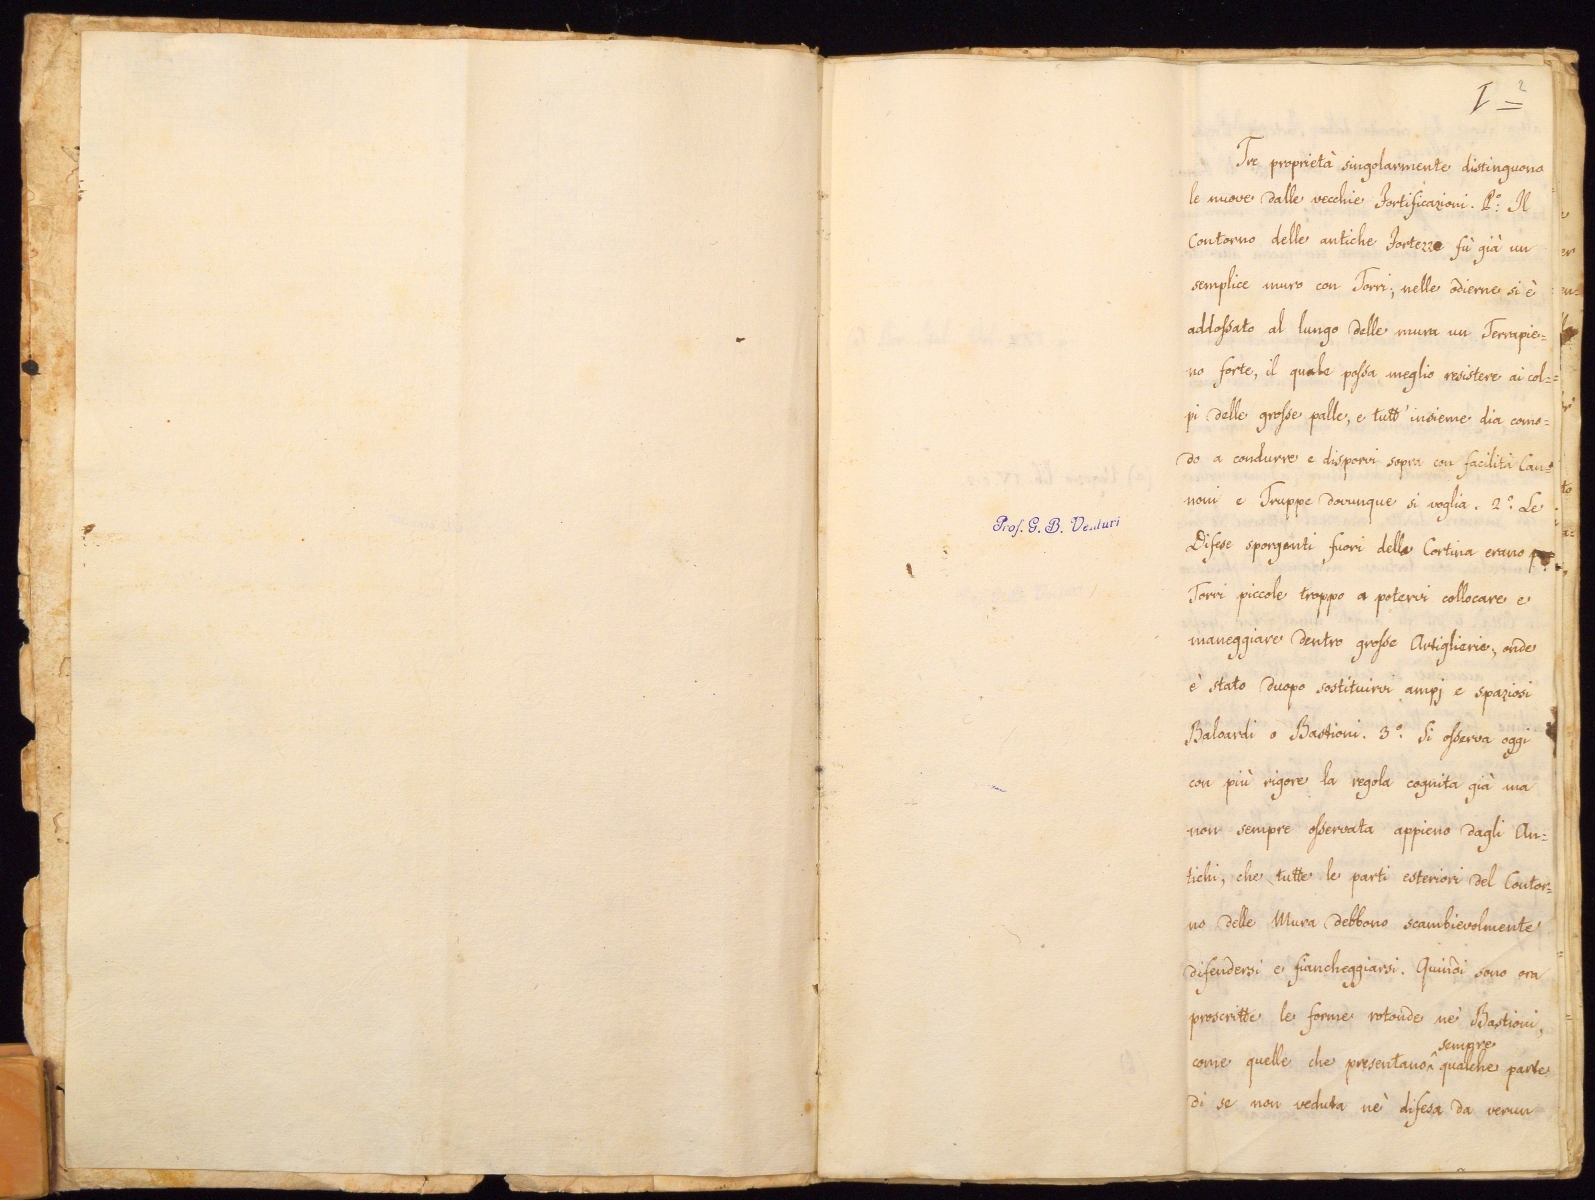 I =
2
Prof. G. B. Venturi
Tre proprietà singolarmente distinguono
le nuove dalle vecchie Fortificazioni. P.º: Il
Contorno delle antiche Fortezze fù già un
semplice muro con Torri; nelle odierne si è
addossato al lungo delle mura un Terrapie=
no forte, il quale possa meglio resistere ai col=
pi delle grosse palle, e tutt'insieme dia como=
do a condurre e disporvi sopra con facilità Can=
noni e Truppe dovunque si voglia. 2.º Le
Difese sporgenti fuori della Cortina erano
Torri piccole troppo a potervi collocare e
maneggiare dentro grosse Artiglierie; onde
è stato duopo sostituirvi ampj e spaziosi
Baloardi o Bastioni. 3.º Si osserva oggi
con più rigore la regola cognita già ma
non sempre osservata appieno dagli An=
tichi, che tutte le parti esteriori del Contor=
no delle Mura debbono scambievolmente
difendersi e fiancheggiarsi. Quindi sono ora
proscritte le forme rotonde ne' Bastioni,
sempre
come quelle che presentano^ qualche parte
di se non veduta nè difesa da verun